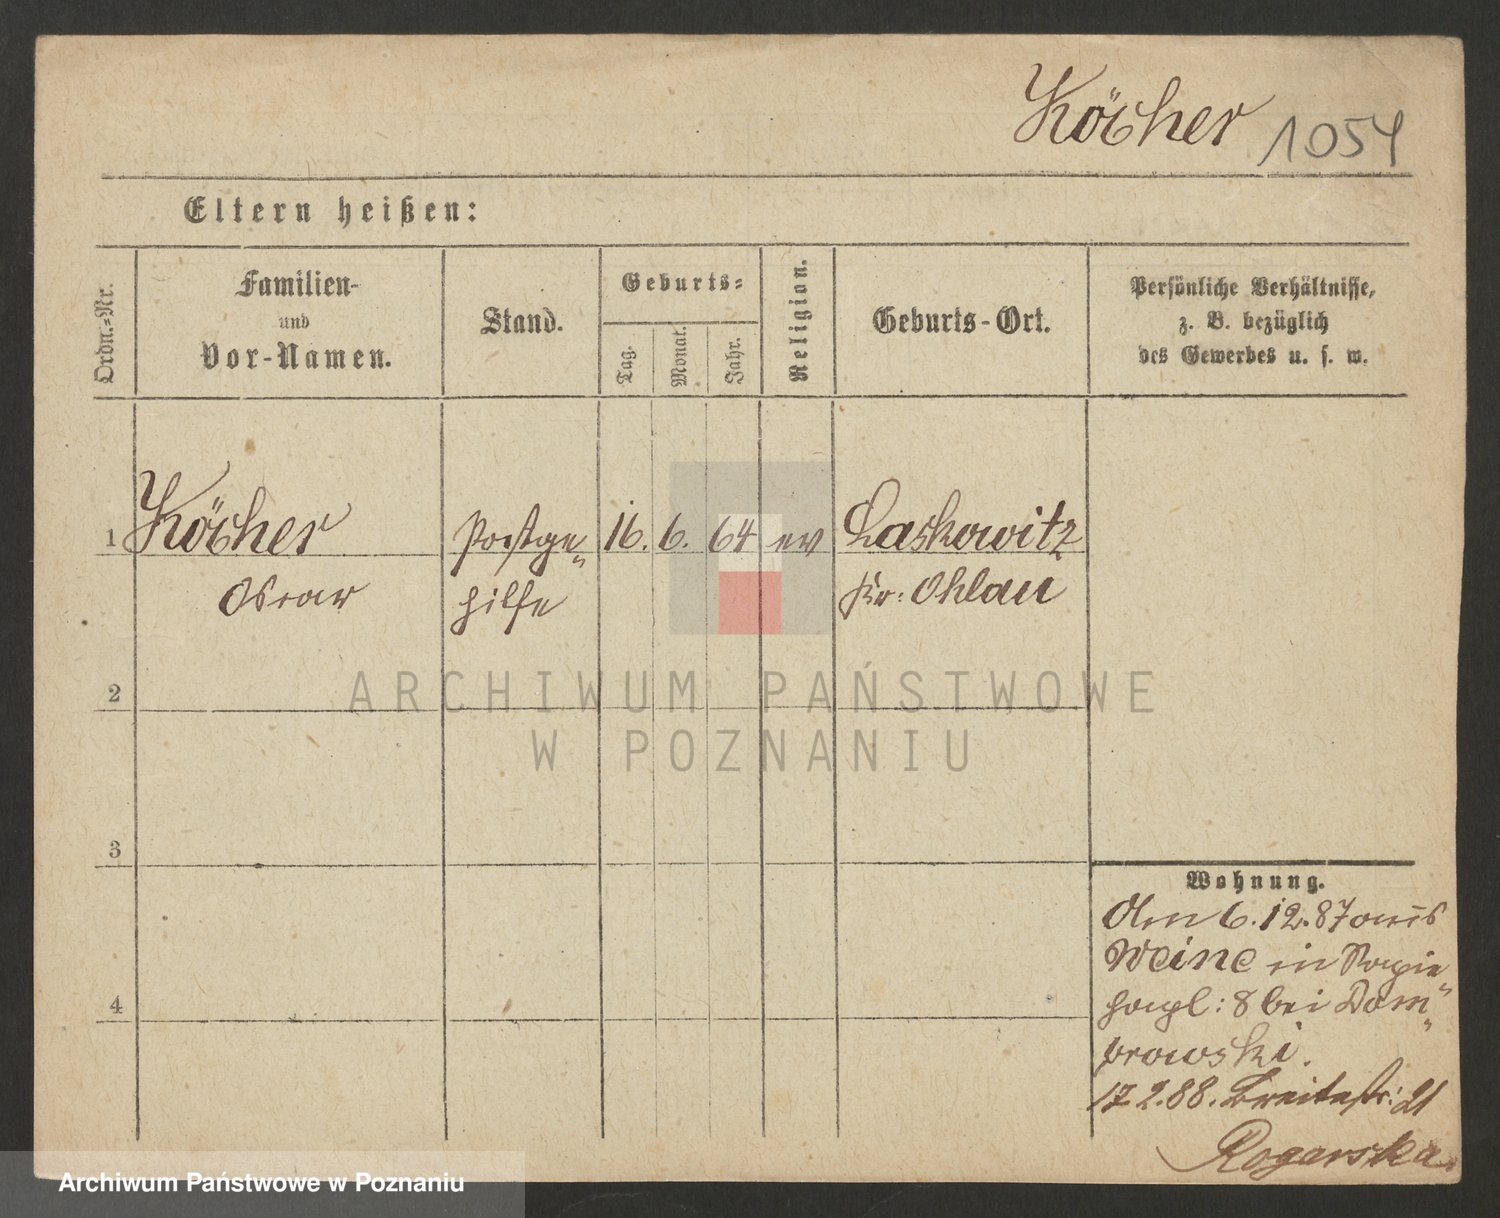 Köcher 1054
Eltern heißen:
Ordn.-Nr.
Familien-
und
Vor-Namen.
Stand.
Geburts-
Tag.
Monat.
Jahr.
Religion.
Geburts-Ort.
Persönliche Verhältnisse,
z. B. bezüglich
des Gewerbes u. s. w.
1 Köcher Postge- 16. 6. 64 ev Laskowitz
Oscar hilfe Kr: Ohlau
2
3
4
ARCHIWUM PAŃSTWOWE
W POZNANIU
Wohnung.
Am 6.12.87 aus
Weine in Sapie
hapl: 8 bei Dom-
browski.
17 2.88. Breitestr: 21
Rogarska.
Archiwum Państwowe w Poznaniu